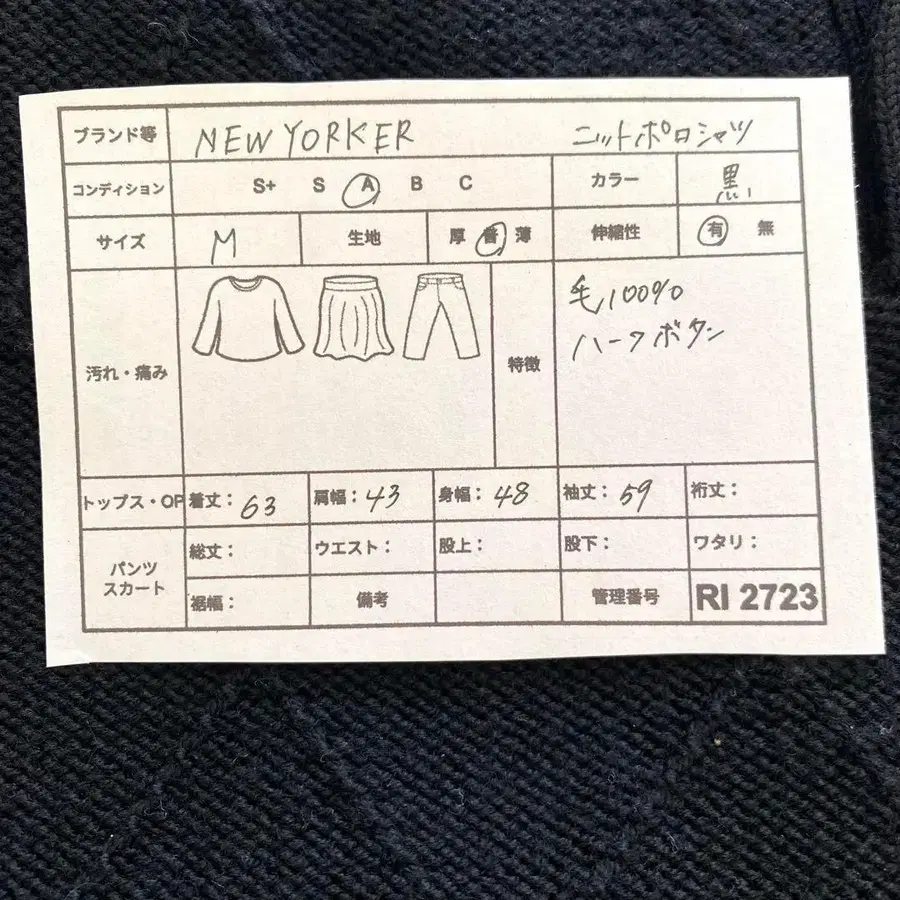 ブランド等 NEW YORKER ニットポロシャツ
コンディション S+ S A B C カラー 黒
サイズ M 生地 厚 普 薄 伸縮性 有 無
汚れ・痛み 特徴 毛100%
ハーフボタン
トップス・OP 着丈: 63 肩幅: 43 身幅: 48 袖丈: 59 裄丈:
パンツ スカート 総丈: ウエスト: 股上: 股下: ワタリ:
裾幅: 備考 管理番号 RI 2723